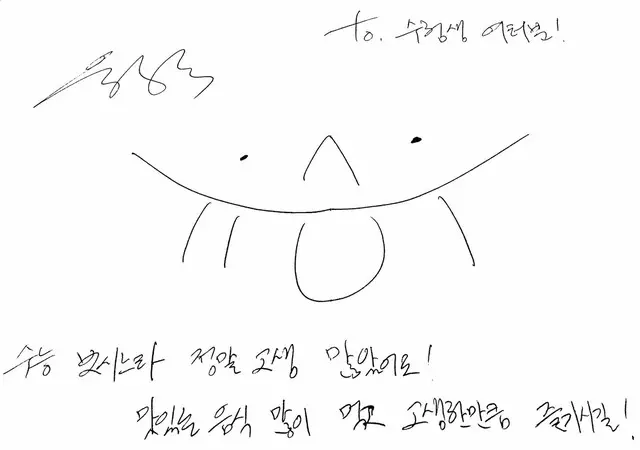 to. 수험생 여러분!
수능 보시느라 정말 고생 많았어요!
맛있는 음식 많이 먹고 고생한만큼 즐기시길!